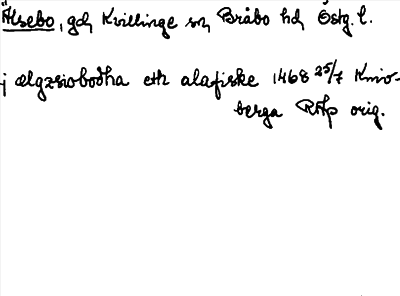 Älsebo, gd, Kvillinge sn, Bråbo hd, Östg. l.
j ælgzsiobodha eth alafiske 1468 25/7 Knio-
berga RAp orig.